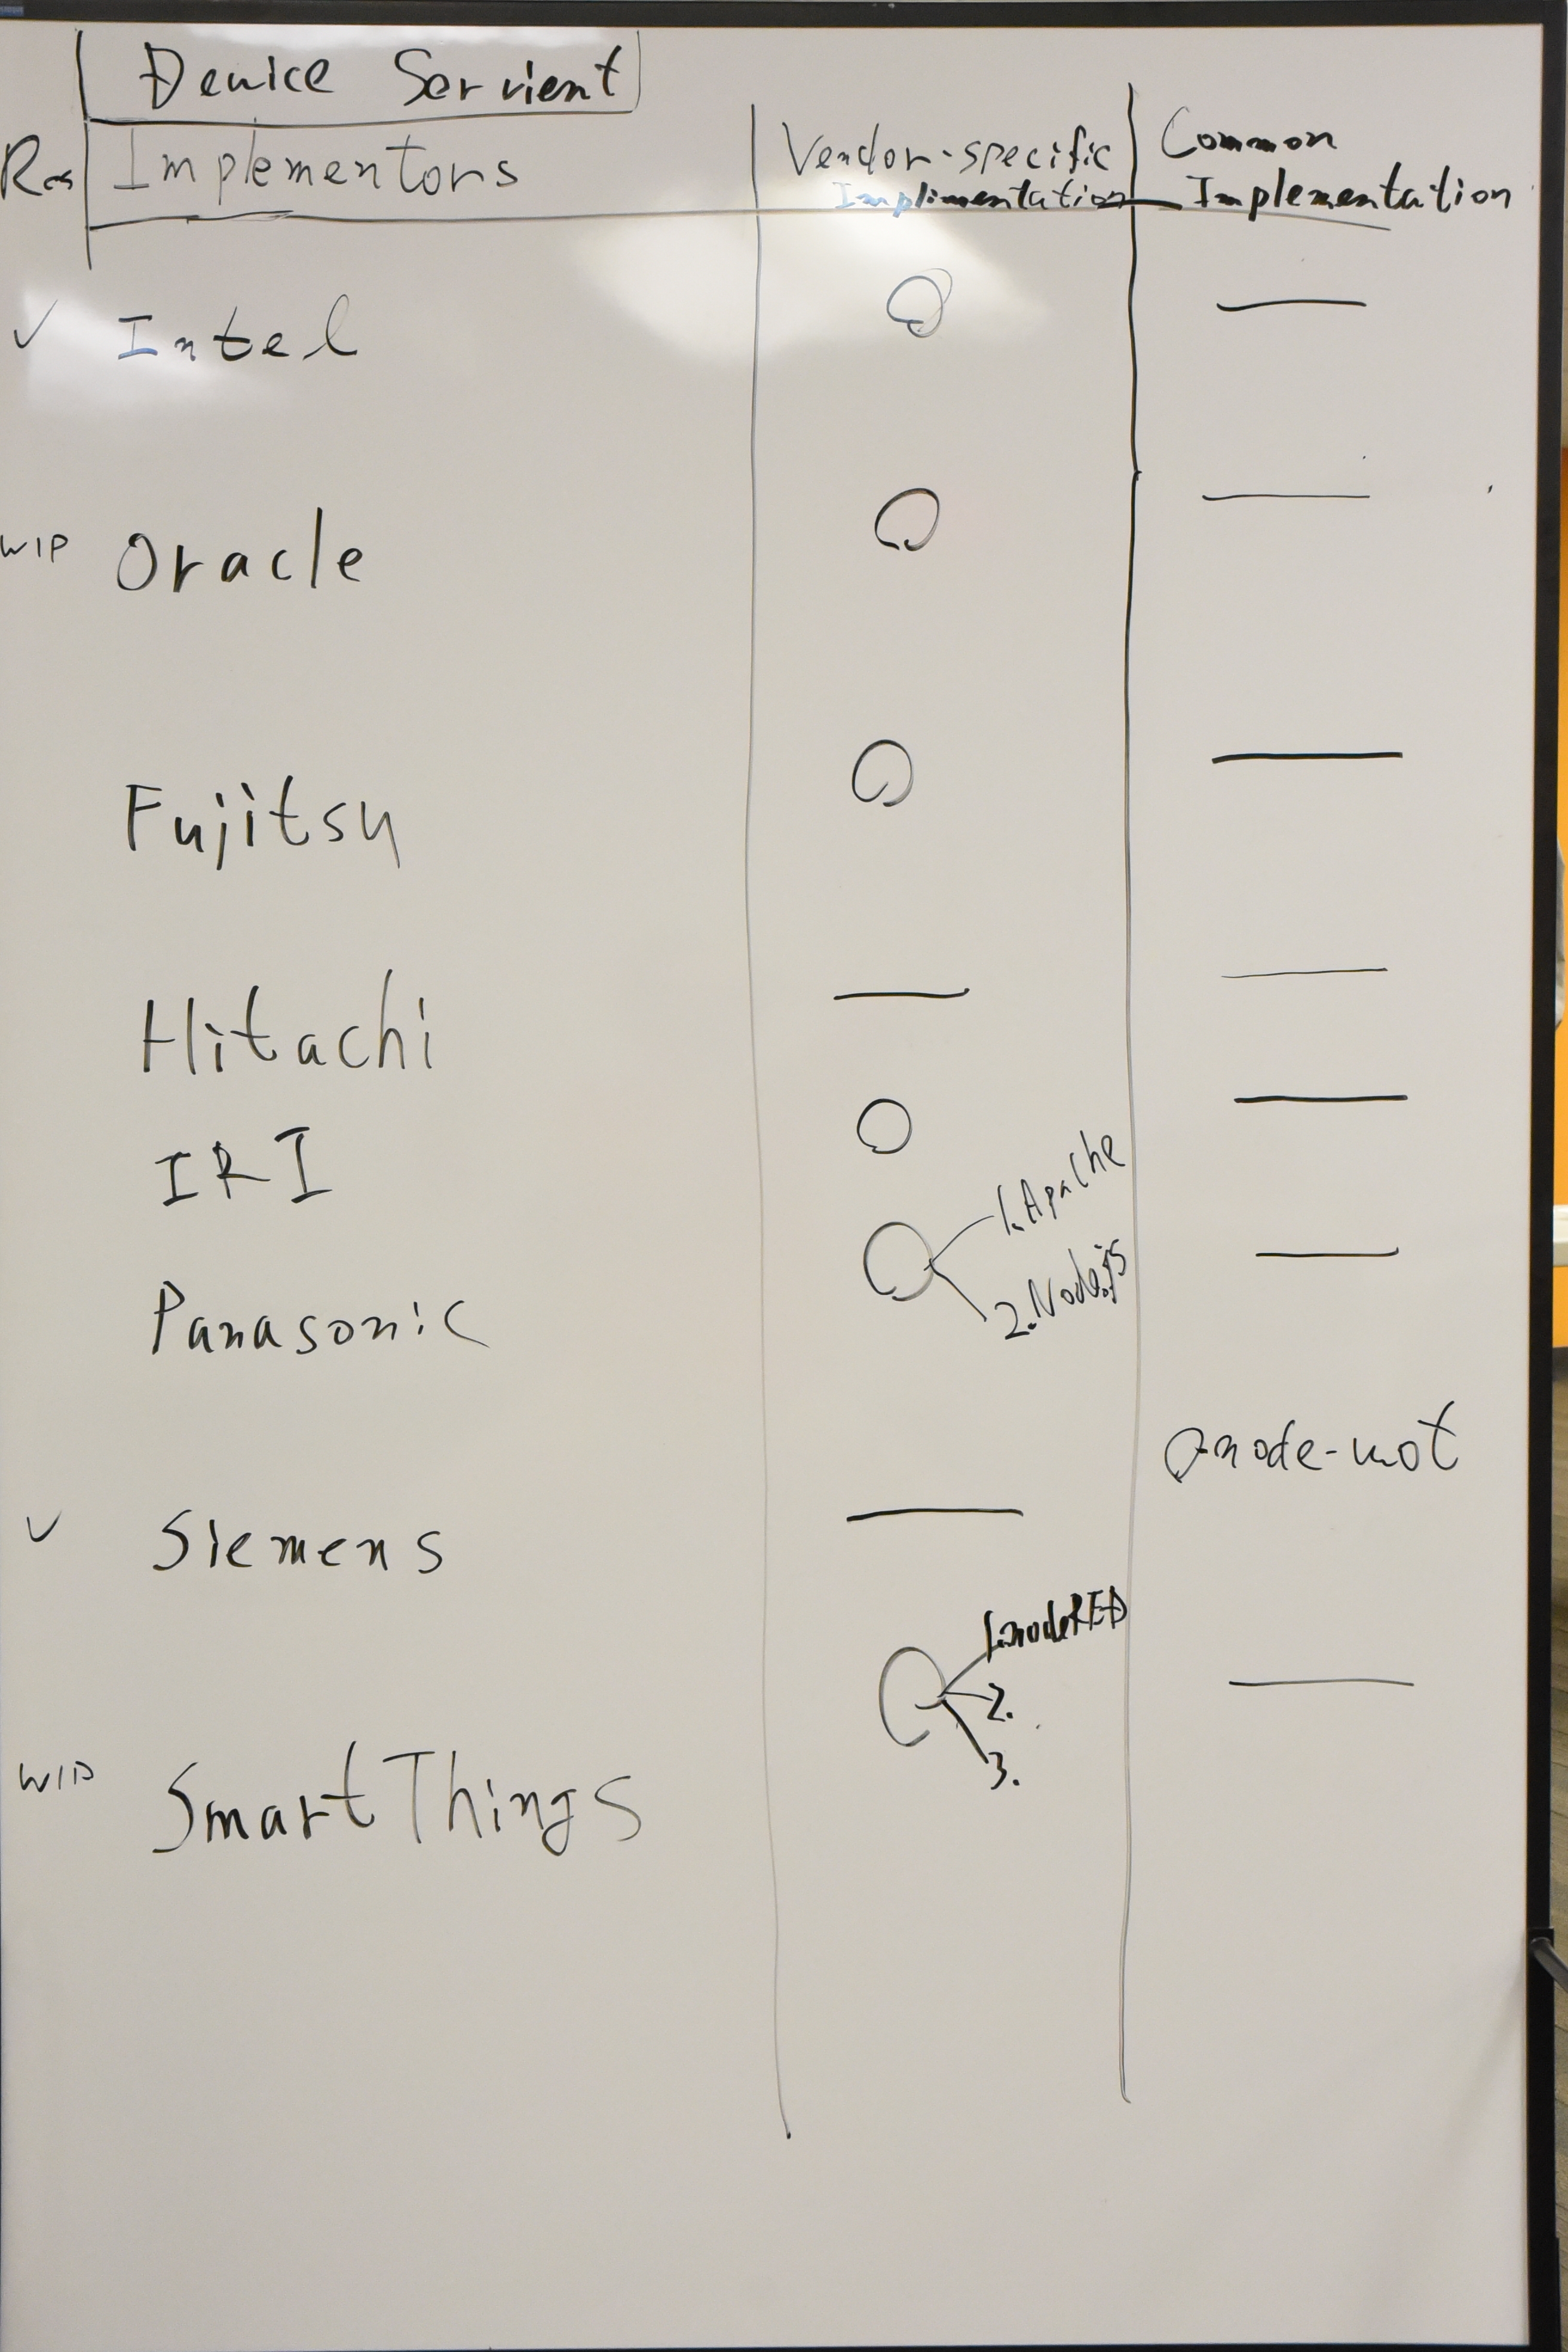 Device Servient
Res Implementors
Vendor-specific
Implimentation
Common
Implementation
✓ Intel
WIP Oracle
Fujitsu
Hitachi
IRI
Panasonic
1. Apache
2. Node.js
✓ Siemens
node-wot
WIP SmartThings
1. nodeRED
2.
3.